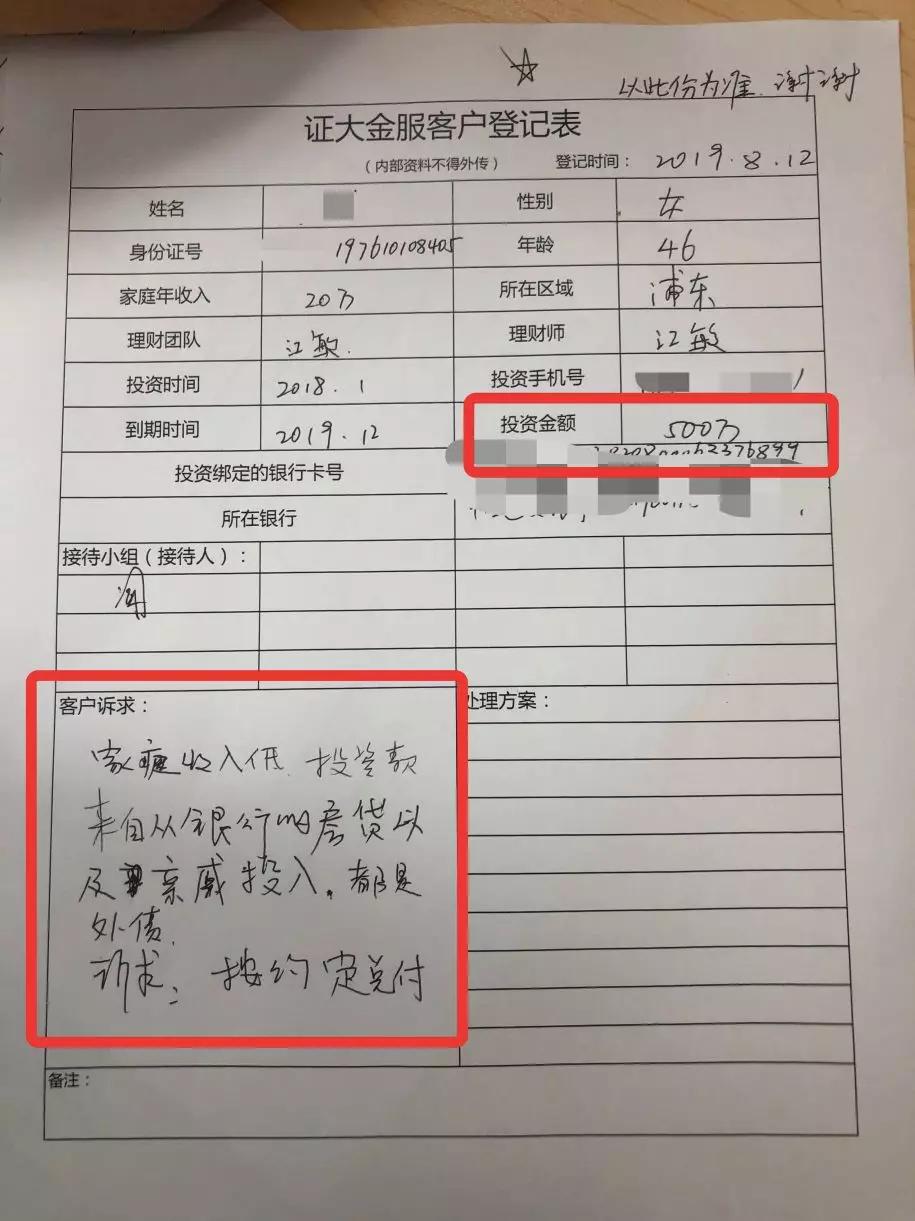 以此份为准.谢谢
证大金服客户登记表
（内部资料不得外传） 登记时间： 2019.8.12
姓名 性别 女
身份证号 197610108405 年龄 46
家庭年收入 20万 所在区域 浦东
理财团队 江敏. 理财师 江敏
投资时间 2018.1 投资手机号
到期时间 2019.12 投资金额 500万
投资绑定的银行卡号
所在银行
接待小组（接待人）：
客户诉求： 处理方案：
家庭收入低.投资款
来自从银行的房贷以
及亲戚投入.都是
外债.
诉求： 按约定兑付
备注：